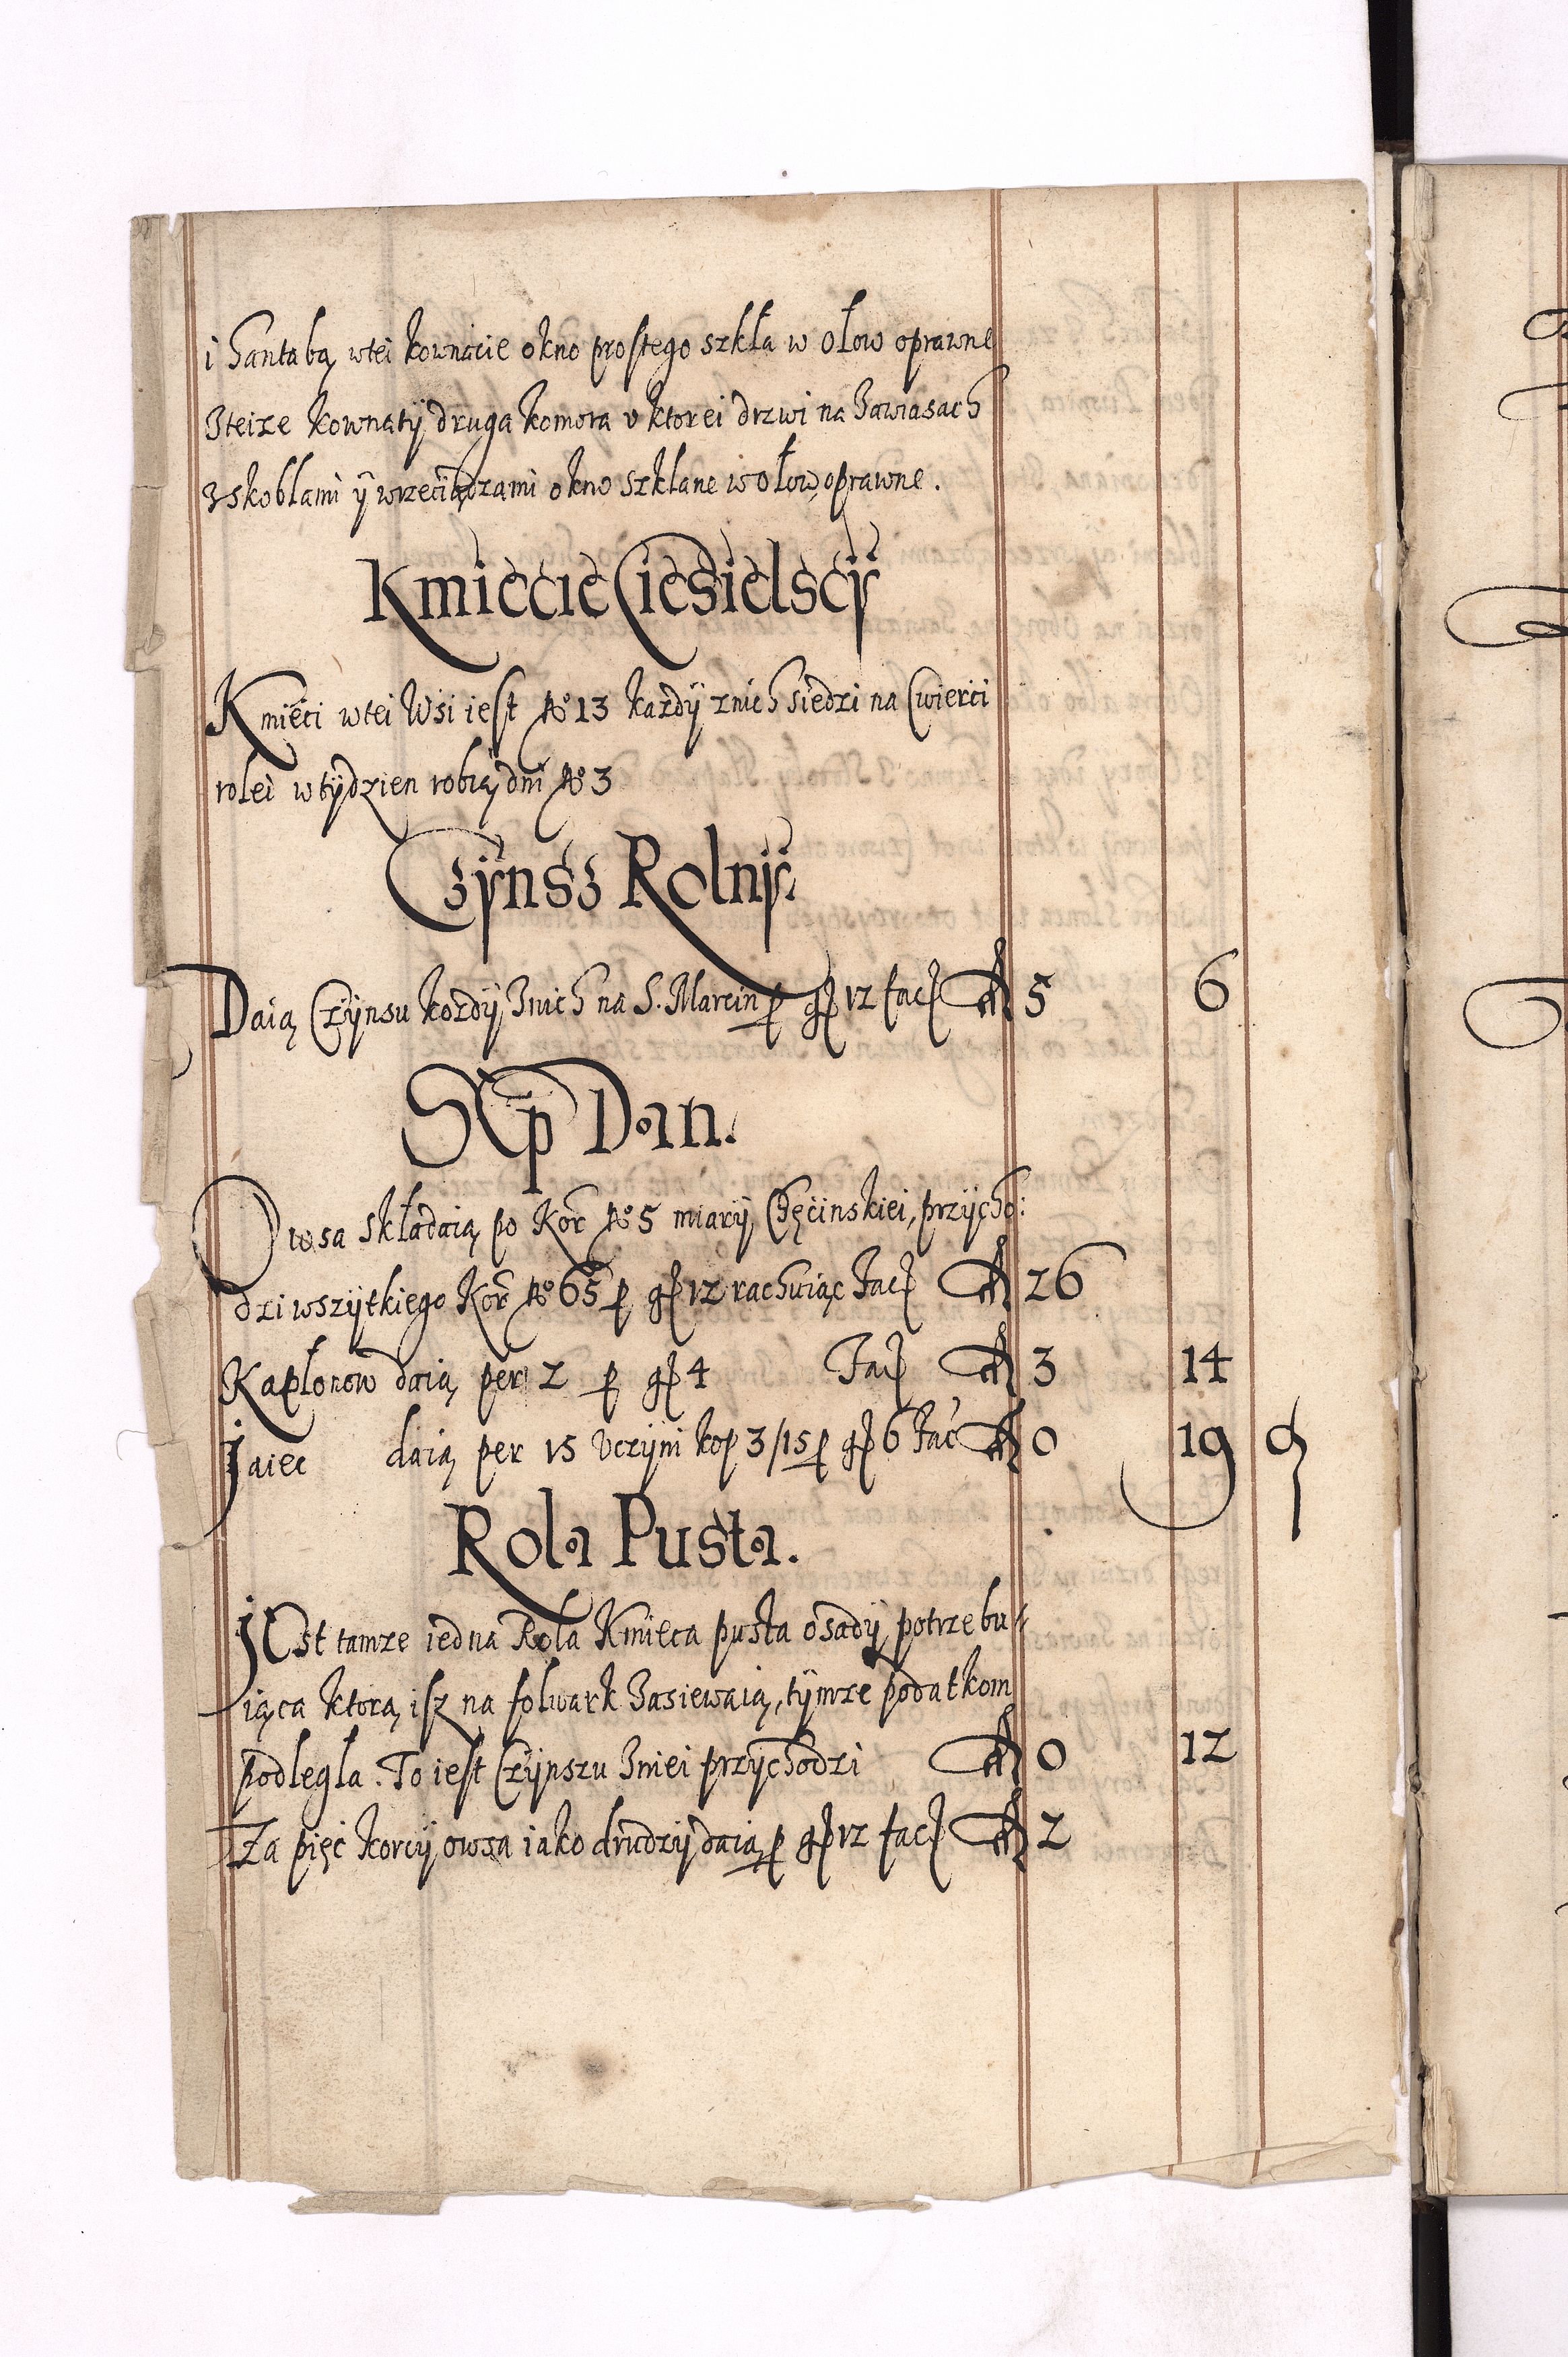 i hantabą wtei kownacie okno prostego szkła w ołow oprawne
Zteize kownatÿ druga komora v ktorei drzwi na Zawiasach
z skoblami ÿ wrzeciądzami okno szklane w ołow oprawne.
Kmiecie Ciesielscÿ
Kmieci wtei Wsi iest No 13 kazdÿ znich siedzi na Cwierci
rolei w tÿdzien robią dni No 3
Czÿnsz Rolnÿ.
Daią Czÿnsu kozdÿ Znich na S. Marcin p gr 12 fac fl 5 6
Sęp Dan.
Owsa składaią po Kor No 5 miarÿ Chęcinskiei, przÿcho:
dzi wszÿtkiego Kor No 65 p gr 12 rachuiąc Fac fl 26
Kapłonow daią per 2 p gr 4 Fac fl 3 14
Jaiec daią per 15 Vczÿni kop 3/15 p gr 6 Fac fl 0 19 9
Rola Pusta.
JEst tamze iedna Rola Kmieca pusta osadÿ potrzebu
iąca ktorą isz na folwark Zasiewaią, tÿmze podatkom
podlegla. To iest Czÿnszu Zniei przÿchodzi fl 0 12
Za pięć korcÿ owsa iako drudzÿ daią p gr 12 fac fl 2